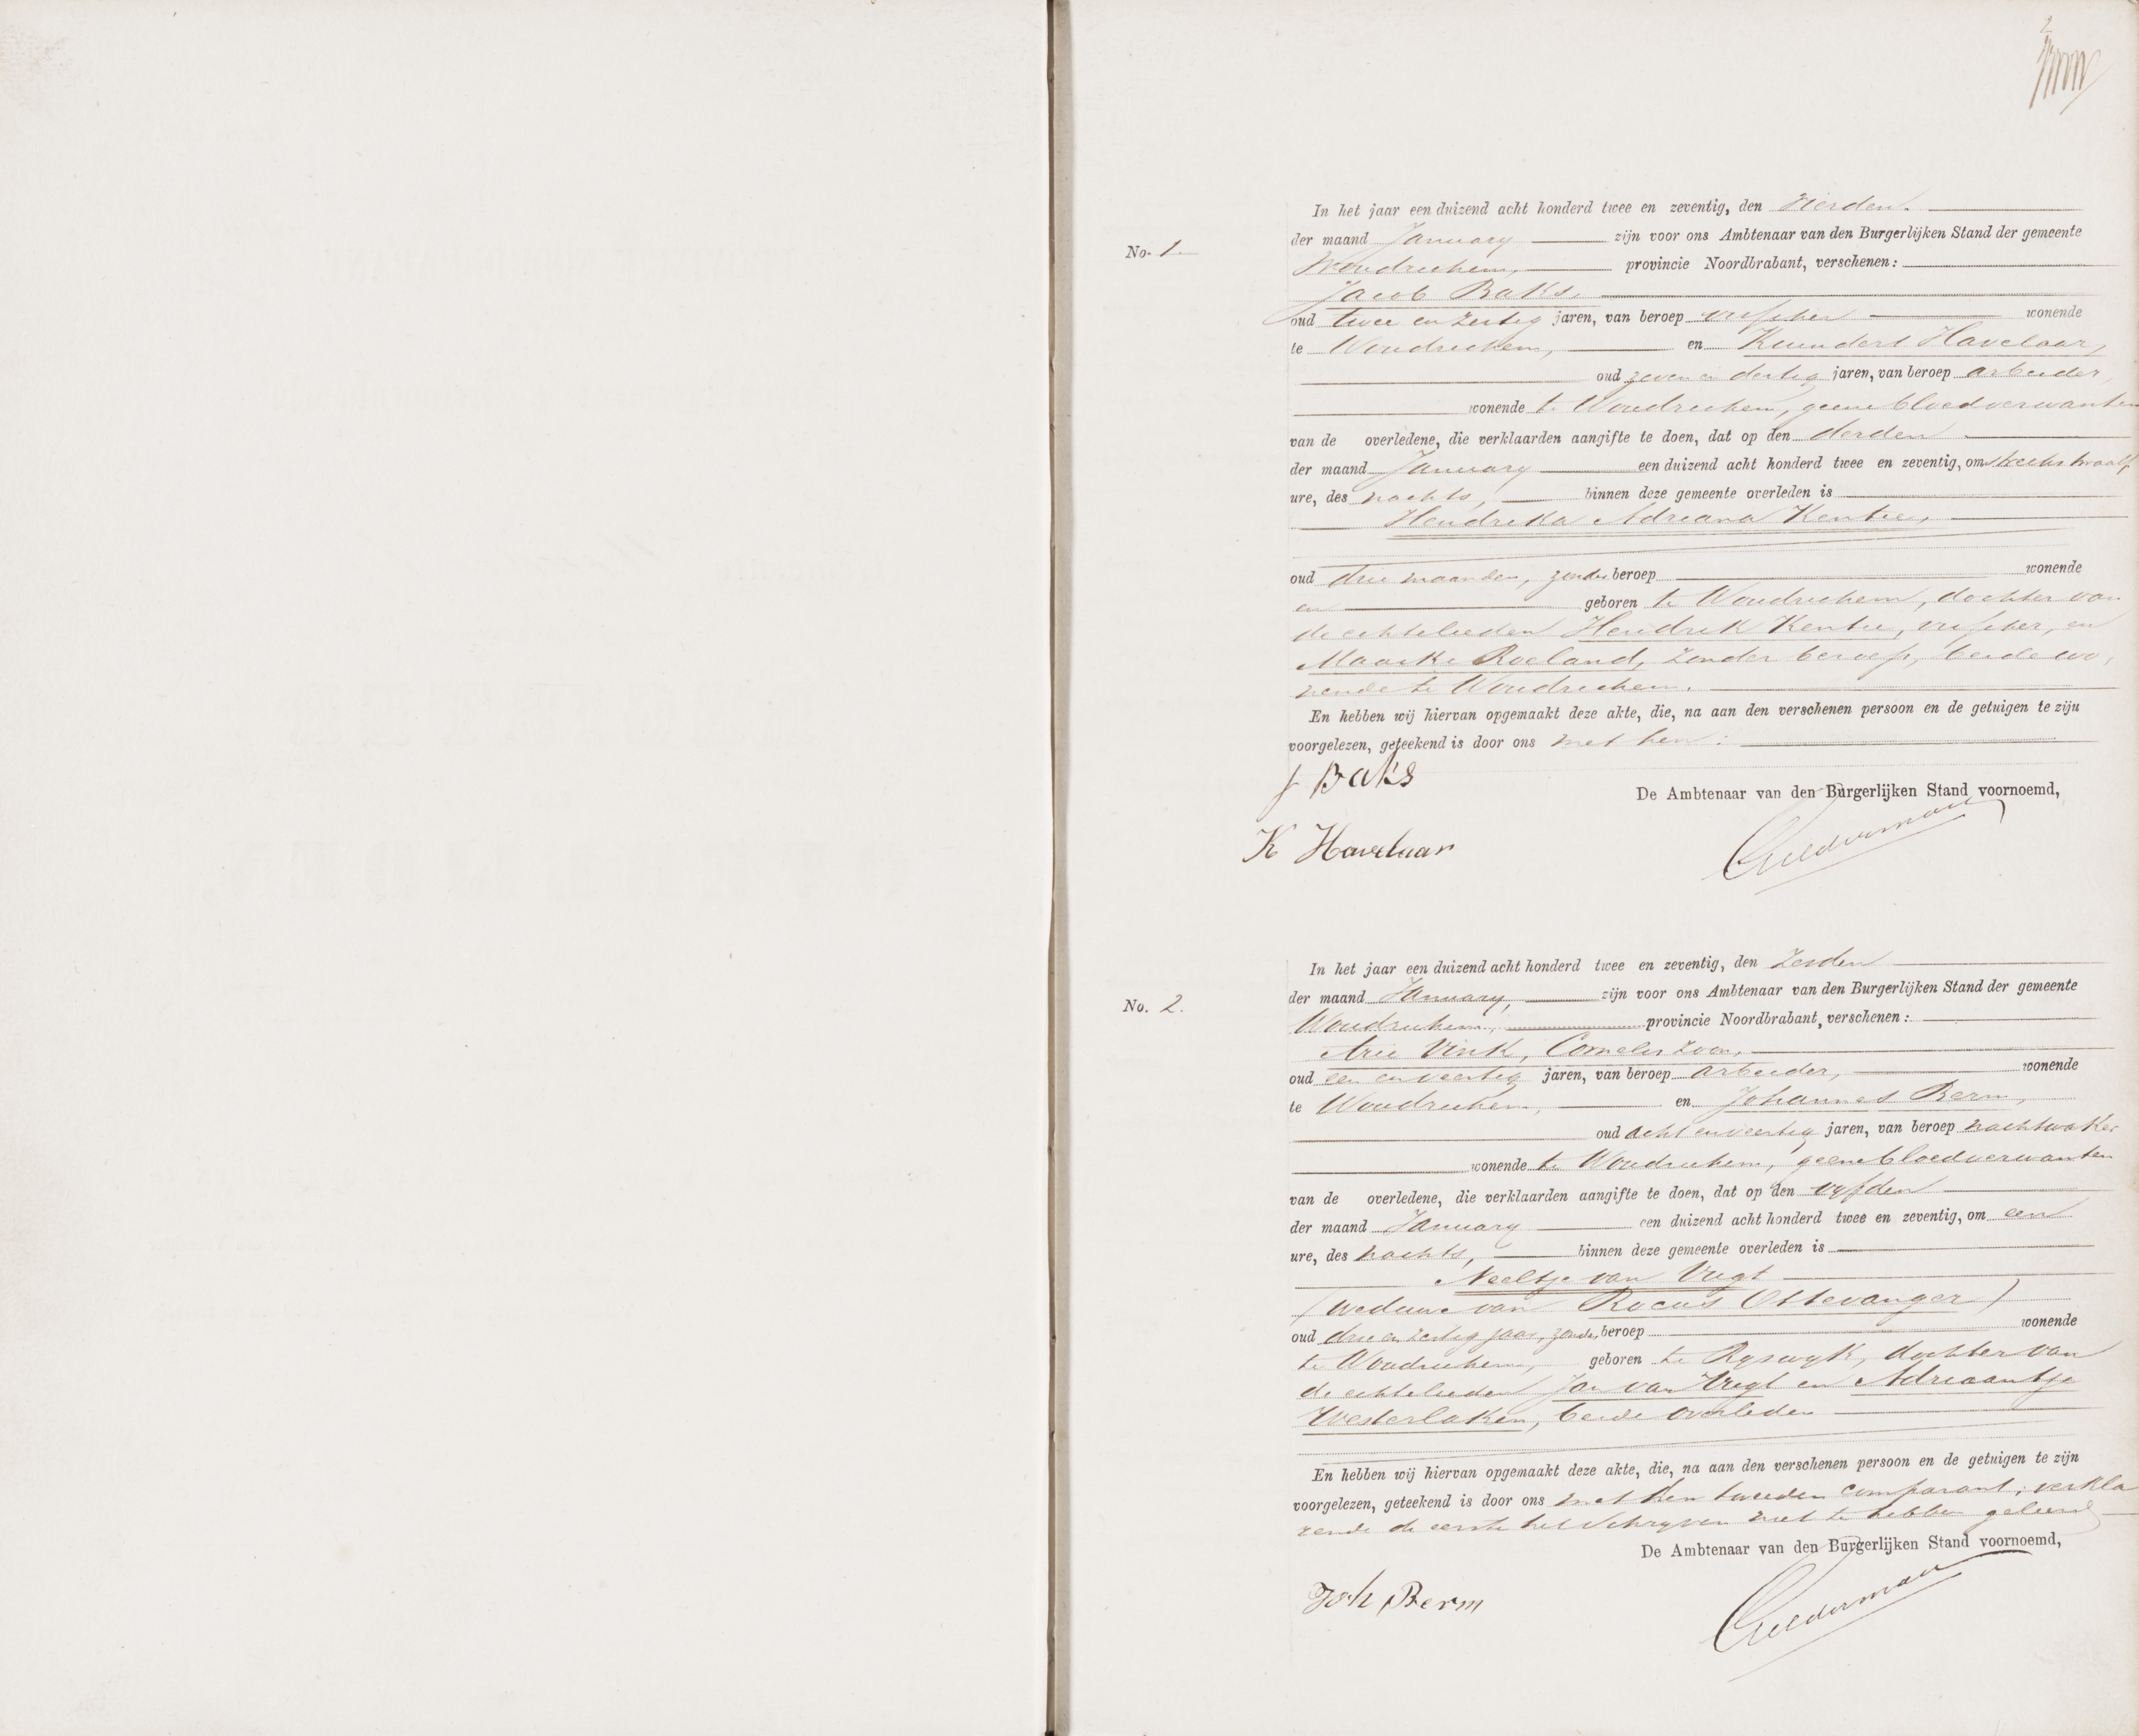 2
No. 1.
In het jaar een duizend acht honderd twee en zeventig, den vierden.
der maand January zijn voor ons Ambtenaar van den Burgerlijken Stand der gemeente
Woudrichem, provincie Noordbrabant, verschenen:
Jacob Baks,
oud twee en zestig jaren, van beroep visscher wonende
te Woudrichem, en Kuundert Havelaar,
oud zeven en dertig jaren, van beroep arbeider,
wonende te Woudrichem, geene bloedverwanten
van de overledene, die verklaarden aangifte te doen, dat op den derden
der maand January een duizend acht honderd twee en zeventig, om twaalf
ure, des nachts, binnen deze gemeente overleden is
Hendrika Adriana Kentie,
oud drie maanden, zonder beroep wonende
en geboren te Woudrichem, dochter van
de echtelieden Hendrik Kentie, visscher, en
Maaike Roeland, zonder beroep, beide wo,
nende te Woudrichem.
En hebben wij hiervan opgemaakt deze akte, die, na aan den verschenen persoon en de getuigen te zijn
voorgelezen, geteekend is door ons met hen:
J Baks
De Ambtenaar van den Burgerlijken Stand voornoemd,
K Havelaar
No. 2.
In het jaar een duizend acht honderd twee en zeventig, den zesden
der maand January, zijn voor ons Ambtenaar van den Burgerlijken Stand der gemeente
Woudrichem, provincie Noordbrabant, verschenen:
Arie Vink, Cornelis zoon,
oud een en veertig jaren, van beroep arbeider, wonende
te Woudrichem, en Johannes Berm,
oud acht en veertig jaren, van beroep nachtwaker
wonende te Woudrichem, geene bloedverwanten
van de overledene, die verklaarden aangifte te doen, dat op den vyfden
der maand January een duizend acht honderd twee en zeventig, om een
ure, des nachts, binnen deze gemeente overleden is
Neeltje van Vugt
(weduwe van Rocus Ottevanger)
oud drie en zestig jaar, zonder beroep wonende
te Woudrichem, geboren te Ryswyk, dochter van
de echtelieden Jan van Vugt en Adriaantje
Westerlaken, beide overleden
En hebben wij hiervan opgemaakt deze akte, die, na aan den verschenen persoon en de getuigen te zijn
voorgelezen, geteekend is door ons met den tweeden comparant, verkla
rende de eerste het schryven niet te hebben geleerd
De Ambtenaar van den Burgerlijken Stand voornoemd,
Joh Berm